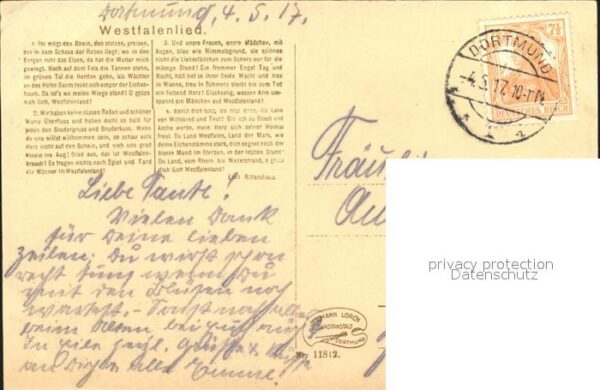 Dortmund, 4.5.17.
Westfalenlied.
1. Ihr mögt den Rhein, den stolzen, preisen,
der in dem Schoss der Reben liegt; wo in den
Bergen ruht das Eisen, da hat die Mutter mich
gewiegt. Hoch auf dem Fels die Tannen stehn,
im grünen Tal die Herden gehn, als Wächter
an des Hofes Saum reckt sich empor der Eichen-
baum. Da ist's wo meine Wiege stand! O grüß
dich Gott, Westfalenland!
2. Wir haben keine süssen Reden und schöner
Worte Überfluss und haben nicht so bald für
jeden den Brudergruss und Bruderkuss. Wenn
du uns willst willkommen sein, so schau aufs
Herz nicht auf den Schein, und sieh uns grad
hinein ins Aug! Grad aus, das ist Westfalen-
brauch! Es fragen nichts nach Spiel und Tand
die Männer in Westfalenland!
3. Und unsre Frauen, unsre Mädchen, mit
Augen, blau wie Himmelsgrund, sie spinnen
nicht die Liebesfädchen zum Scherz nur für die
müss'ge Stund! Ein frommer Engel Tag und
Nacht, hält tief in ihrer Seele Wacht und treu
in Wonne, treu in Schmerz bleibt bis zum Tod
ein liebend Herz! Glückselig, wessen Arm um-
spannt ein Mädchen aus Westfalenland!
4. Behüt dich Gott, du rote Erde, du Land
von Wittekind und Teut! Bis ich zu Staub und
Asche werde, mein Herz sich seiner Heimat
freut. Du Land Westfalen, Land der Mark, wie
deine Eichenstämme stark, dich segnet noch der
blasse Mund im Sterben, in der letzten Stund!
Du Land, vom Rhein bis Weserstrand, o grüß
dich Gott Westfalenland!
Emil Rittershaus.
DORTMUND
-4.5.17. 10-11 N.
7½
Fräulein
Liebe Tante!
Vielen Dank
für Deine lieben
Zeilen. Du wirst schon
recht
wenn Du
mit den Blusen noch
wartest.
beim Alten bei
an Dich
HERMANN LORCH
KUNSTANSTALT
DORTMUND
Nr. 11812.
privacy protection
Datenschutz